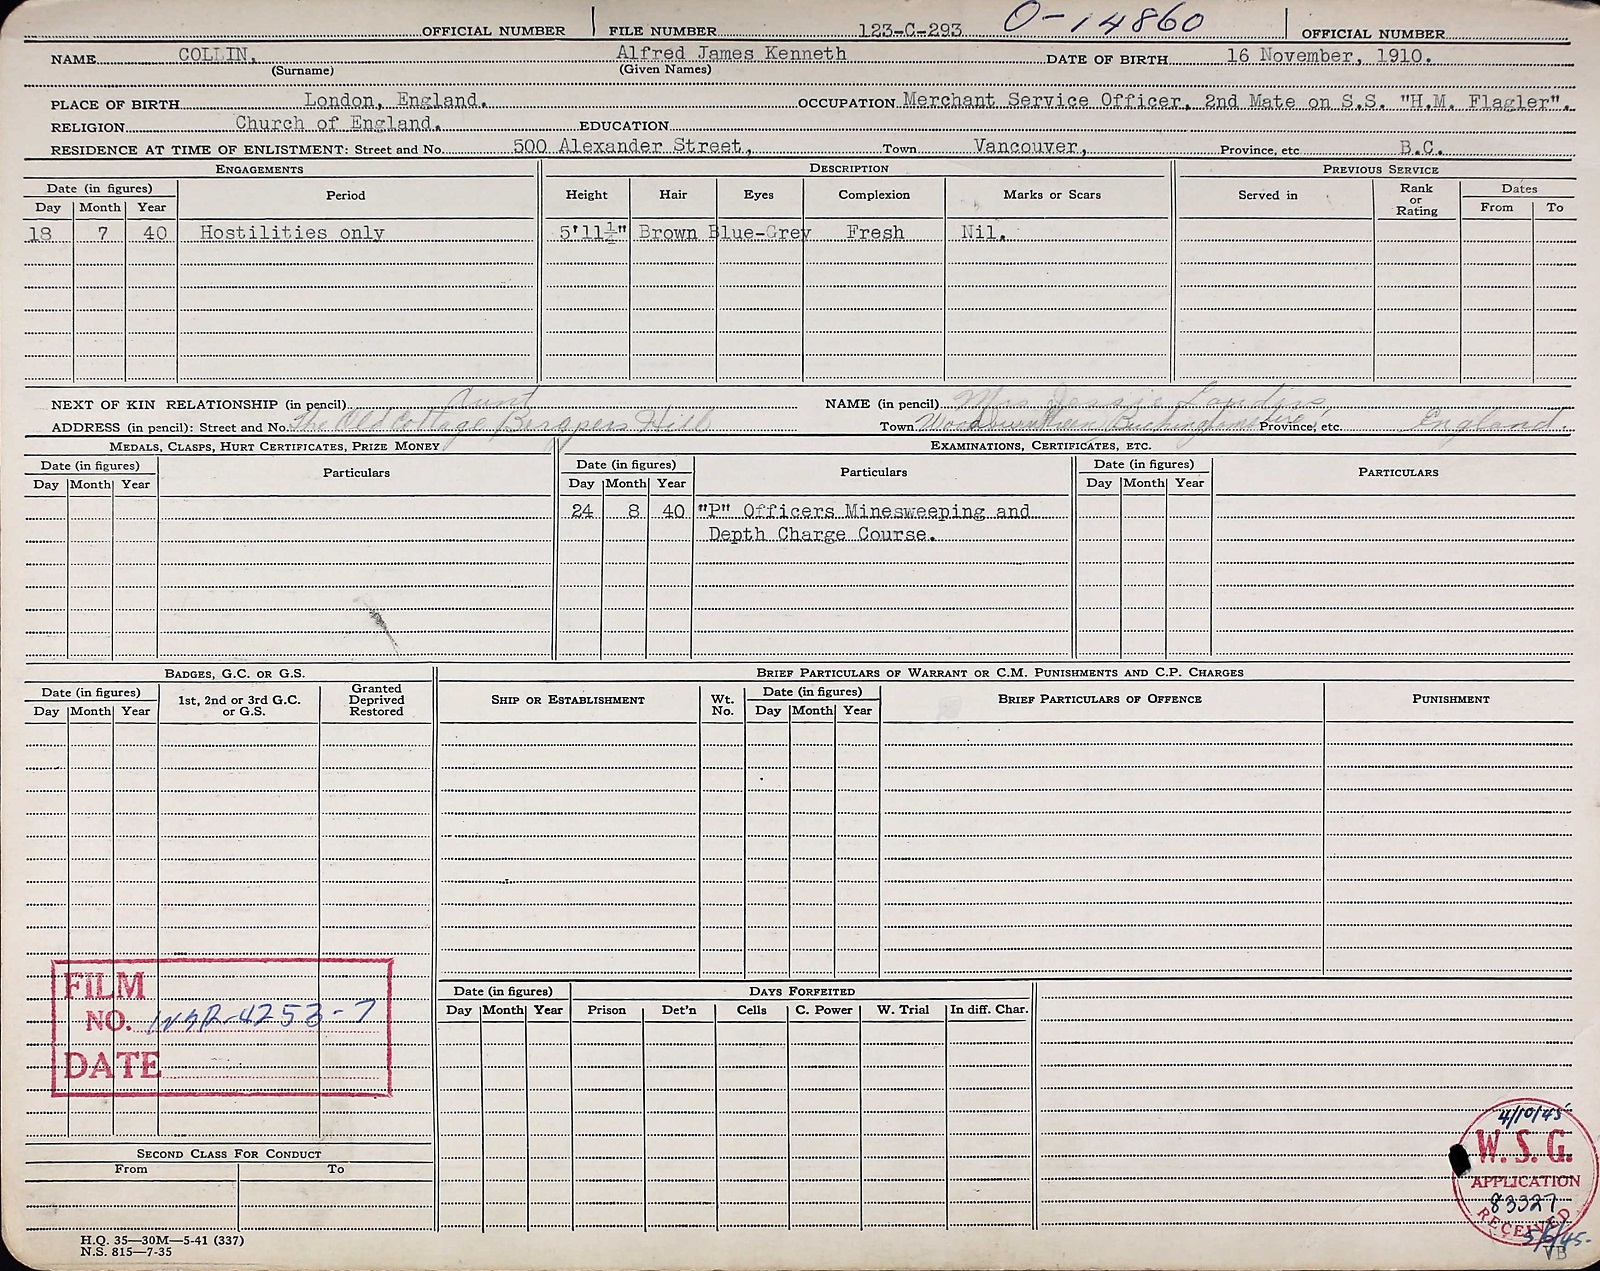 OFFICIAL NUMBER FILE NUMBER 123-C-293 O-14860 OFFICIAL NUMBER
NAME COLLIN, Alfred James Kenneth DATE OF BIRTH 16 November, 1910.
(Surname) (Given Names)
PLACE OF BIRTH London, England. OCCUPATION Merchant Service Officer, 2nd Mate on S.S. "H.M. Flagler".
RELIGION Church of England. EDUCATION
RESIDENCE AT TIME OF ENLISTMENT: Street and No. 500 Alexander Street, Town Vancouver, Province, etc B.C.
ENGAGEMENTS DESCRIPTION PREVIOUS SERVICE
Date (in figures) Period Height Hair Eyes Complexion Marks or Scars Served in Rank or Rating Dates
Day Month Year From To
18 7 40 Hostilities only 5'11¼" Brown Blue-Grey Fresh Nil.
NEXT OF KIN RELATIONSHIP (in pencil) Aunt NAME (in pencil) Mrs Jessie
ADDRESS (in pencil): Street and No. The Old Cottage Hill Town Buckinghamshire, Province, etc. England.
MEDALS, CLASPS, HURT CERTIFICATES, PRIZE MONEY EXAMINATIONS, CERTIFICATES, ETC.
Date (in figures) Particulars Date (in figures) Particulars Date (in figures) PARTICULARS
Day Month Year Day Month Year Day Month Year
24 8 40 "P" Officers Minesweeping and
Depth Charge Course.
BADGES, G.C. OR G.S. BRIEF PARTICULARS OF WARRANT OR C.M. PUNISHMENTS AND C.P. CHARGES
Date (in figures) 1st, 2nd or 3rd G.C. or G.S. Granted Deprived Restored SHIP OR ESTABLISHMENT Wt. No. Date (in figures) BRIEF PARTICULARS OF OFFENCE PUNISHMENT
Day Month Year Day Month Year
FILM
NO. -4253-7
DATE
Date (in figures) DAYS FORFEITED
Day Month Year Prison Det'n Cells C. Power W. Trial In diff. Char.
4/10/45
W. S. G.
APPLICATION
83327
RECEIVED
5/6/45.
VB
SECOND CLASS FOR CONDUCT
From To
H.Q. 35—30M—5-41 (337)
N.S. 815—7-35